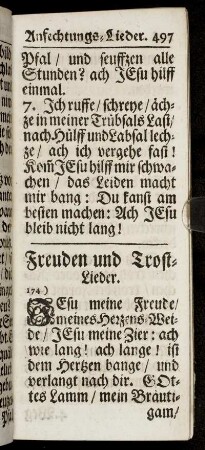 Anfechtungs-Lieder. 497
Pfal / und seuffzen alle
Stunden? ach JEsu hilff
einmal.
7. Ich ruffe / schreye / äch-
ze in meiner Trübsals Last /
nach Hülff und Labsal lech-
ze / ach ich vergehe fast!
Kom̃ JEsu hilff mir schwa-
chen / das Leiden macht
mir bang: Du kanst am
besten machen: Ach JEsu
bleib nicht lang!
Freuden und Trost-
Lieder.
174.)
JEsu meine Freude /
meines Hertzens Wei-
de / JEsu meine Zier: ach
wie lang! ach lange! ist
dem Hertzen bange / und
verlangt nach dir. GOt-
tes Lamm / mein Bräuti-
gam /